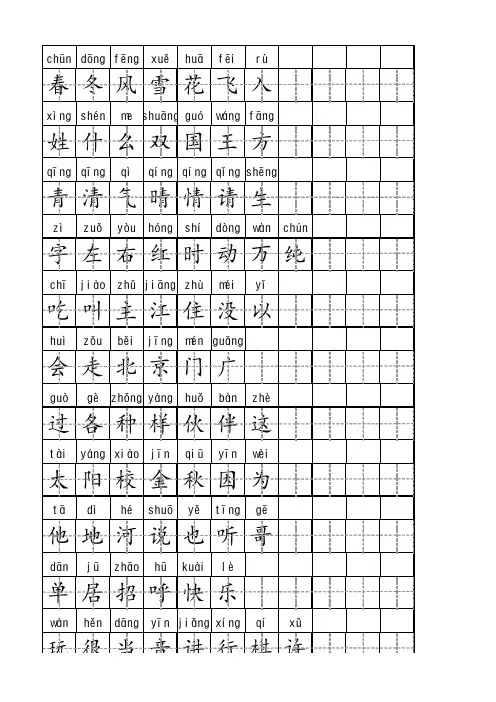 chūn dōng fēng xuě huā fēi rù
春 冬 风 雪 花 飞 入
xìng shén me shuāng guó wáng fāng
姓 什 么 双 国 王 方
qīng qīng qì qíng qíng qǐng shēng
青 清 气 晴 情 请 生
zì zuǒ yòu hóng shí dòng wàn chún
字 左 右 红 时 动 万 纯
chī jiào zhǔ jiāng zhù méi yǐ
吃 叫 主 江 住 没 以
huì zǒu běi jīng mén guǎng
会 走 北 京 门 广
guò gè zhǒng yàng huǒ bàn zhè
过 各 种 样 伙 伴 这
tài yáng xiào jīn qiū yīn wèi
太 阳 校 金 秋 因 为
tā dì hé shuō yě tīng gē
他 地 河 说 也 听 哥
dān jū zhāo hū kuài lè
单 居 招 呼 快 乐
wán hěn dāng yīn jiǎng xíng qí xǔ
玩 很 当 音 讲 行 棋 许